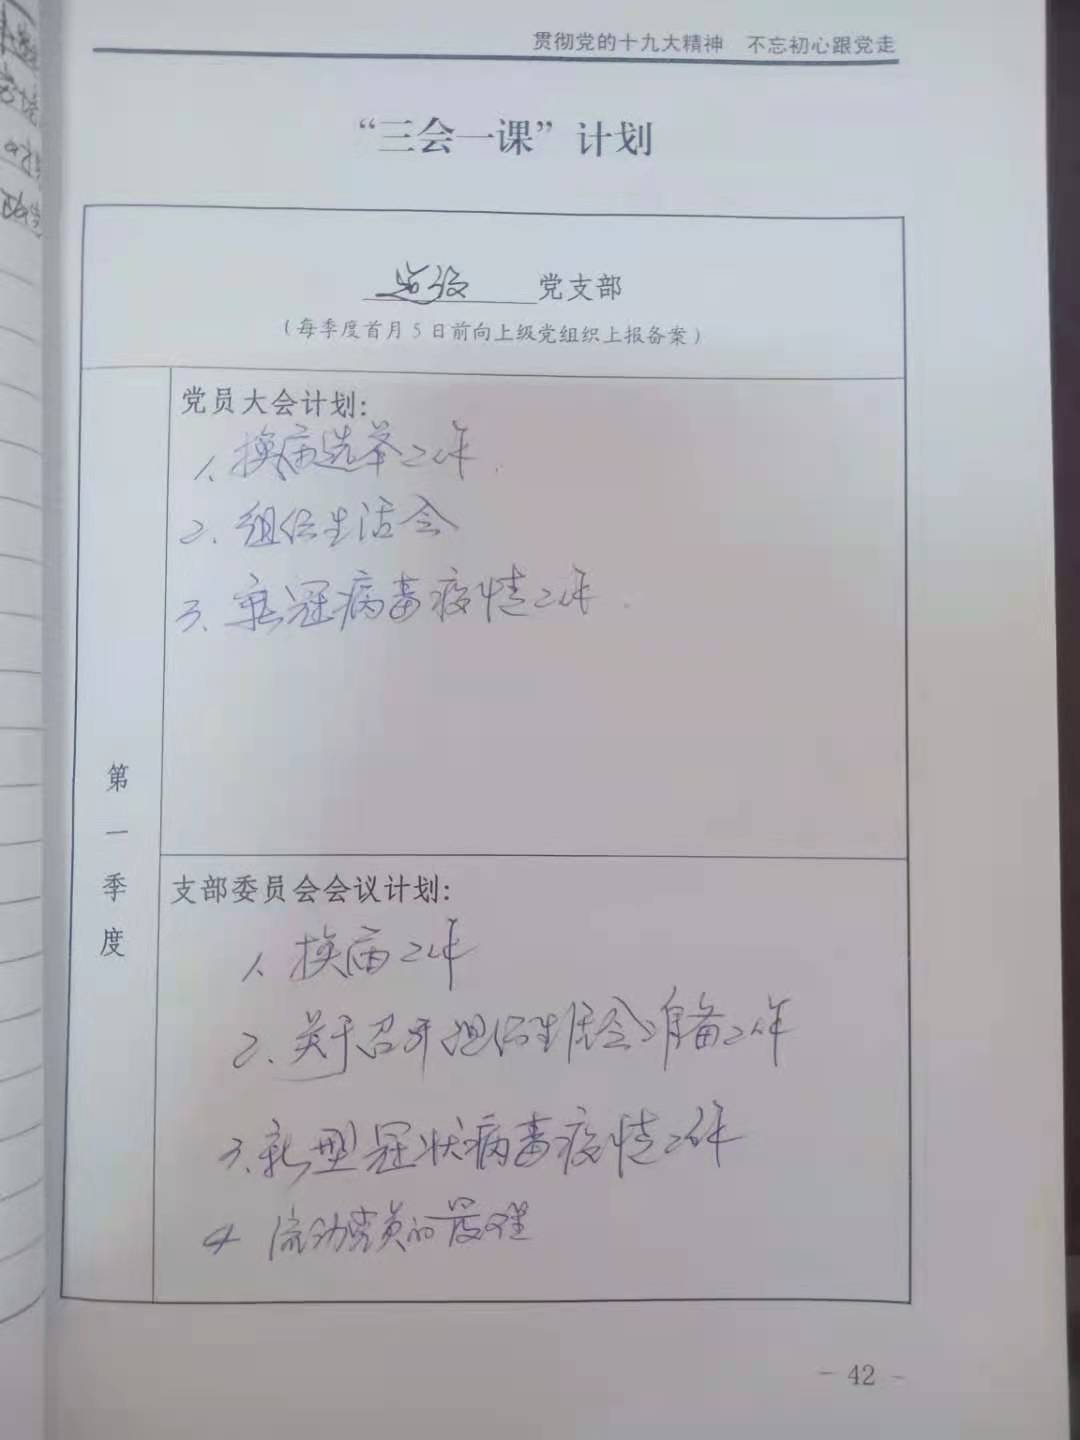 贯彻党的十九大精神 不忘初心跟党走
“三会一课”计划
党支部
(每季度首月5日前向上级党组织上报备案)
第一季度
党员大会计划:
1、换届选举工作.
2、组织生活会
3、新冠病毒疫情工作.
支部委员会会议计划:
1、换届工作
2、关于召开组织生活会准备工作
3、新型冠状病毒疫情工作
4 流动党员的管理
- 42 -